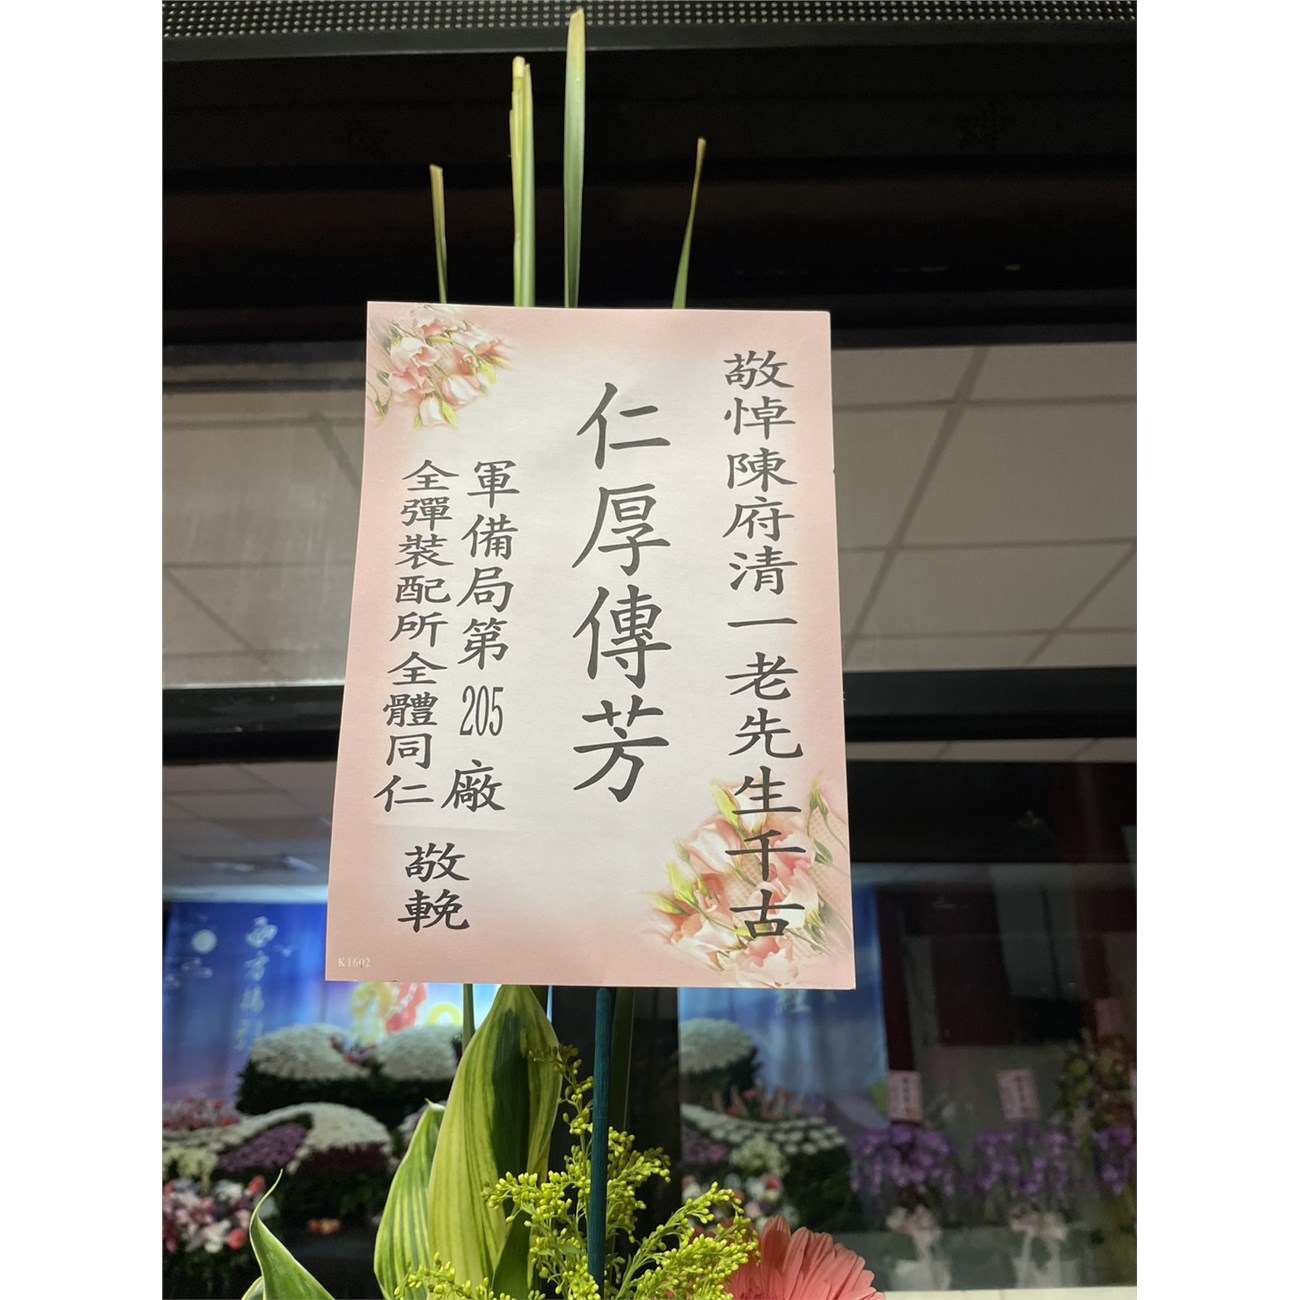 敬悼陳府清一老先生千古
仁厚傳芳
軍備局第205廠
全彈裝配所全體同仁
敬輓
K1602
西方接引